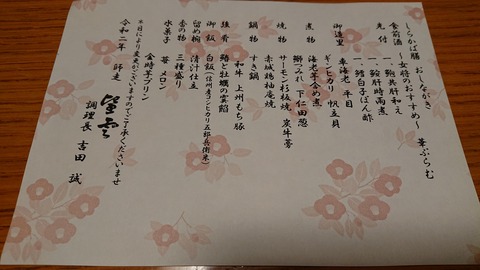 しらかば膳 おしながき 華ぶらむ
食前酒 ～女将のおすすめ～
先付 一、鮑共肝和え
一、鮟肝時雨煮
一、鱈白子ぽん酢
御造里 車海老 平目
ギンヒカリ 帆立貝
煮物 海老芋含め煮
鰤みぞれ 下仁田葱
焼物 サーモン杉板焼 炭牛蒡
赤城鶏柚庵焼
鍋物 すき鍋
和牛 上州もち豚
強肴 鮪と牡蠣の雲呑
御飯 白飯（信州産コシヒカリ五郎兵衛米）
留め椀 清汁仕立
香の物 三種盛り
水菓子 苺 メロン
金時芋プリン
※日により変更がございますのでご了承くださいませ
令和二年 師走
調理長 吉田 誠